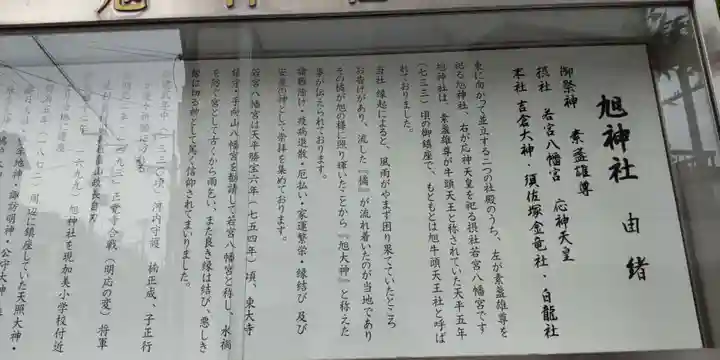 旭神社
旭神社 由緒
御祭神 素盞雄尊
摂社 若宮八幡宮 応神天皇
末社 吉倉大神・須佐塚金竜社・白龍社
東に向かって並立する二つの社殿のうち、左が素盞雄尊を
祀る旭神社、右が応神天皇を祀る摂社若宮八幡宮です
旭神社は、素盞雄尊が牛頭天王と称されていた天平五年
(七三三)頃の御鎮座で、もともとは旭牛頭天王社と呼ば
れておりました。
当社縁起によると、風雨がやまず困り果てていたところ
お告げがあり、流した『橘』が流れ着いたのが当地であり
その橘が旭の様に照り輝いたことから『旭大神』と称えた
事が伝えられております。
諸難除け・疫病退散・厄払い・家運繁栄・縁結び及び
安産の神として崇拝を集めております。
若宮八幡宮は天平勝宝六年(七五四年)頃、東大寺
鎮守・手向山八幡宮を勧請して若宮八幡宮と称し、水禍
を除く宮として古くから雨乞い、また良き縁は結び、悪しき
縁に切る神として篤く信仰されてまいりました。
年中(一三三〇頃)河内守護 楠正成、子正行
が祈願
(一四九三)正覚寺合戦(明応の変)将軍
畠山政長自刃
(一八七二)周辺に鎮座していた天照大神・
諏訪明神・公守大神
六九)旭神社を現加美小学校付近